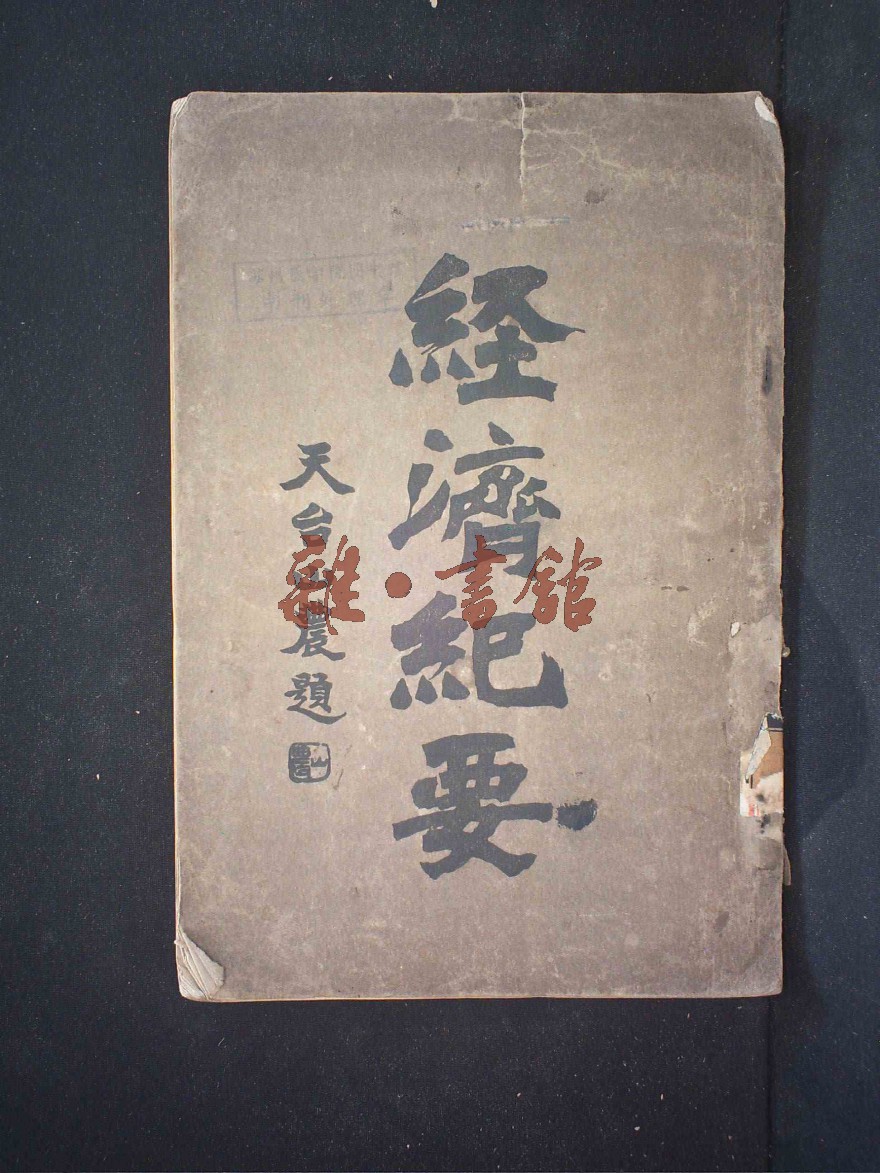 経濟紀要
天台山農題
雜·書館